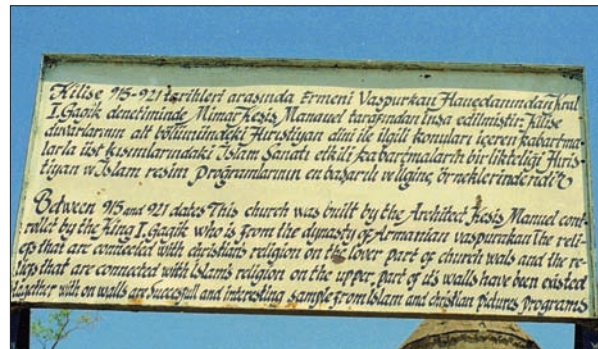 Kilise 915-921 tarihleri arasında Ermeni Vaspurkan Hanedanından Kral
I. Gagik denetiminde Mimar Keşiş Manauel tarafından İnşa edilmiştir. Kilise
duvarlarının alt bölümündeki Hıristiyan dini ile ilgili konuları içeren kabartma-
larla üst kısımlarındaki İslam Sanatı etkili kabartmaların birlikteliği Hıris-
tiyan ve İslam resim programlarının en başarılı ve ilginç örneklerindendir
Between 915 and 921 dates This church was built by the Architect Kesis Manuel cont-
rollet by the King I. Gagik who is from the dynasty of Armanian vaspurukan The reli-
efs that are connected with christians religion on the lower part of church wals and the re-
liefs that are connected with Islams religion on the upper part of it's walls have been existed
together with on walls are Successfull and interesting sample from Islam and christian pictures programs